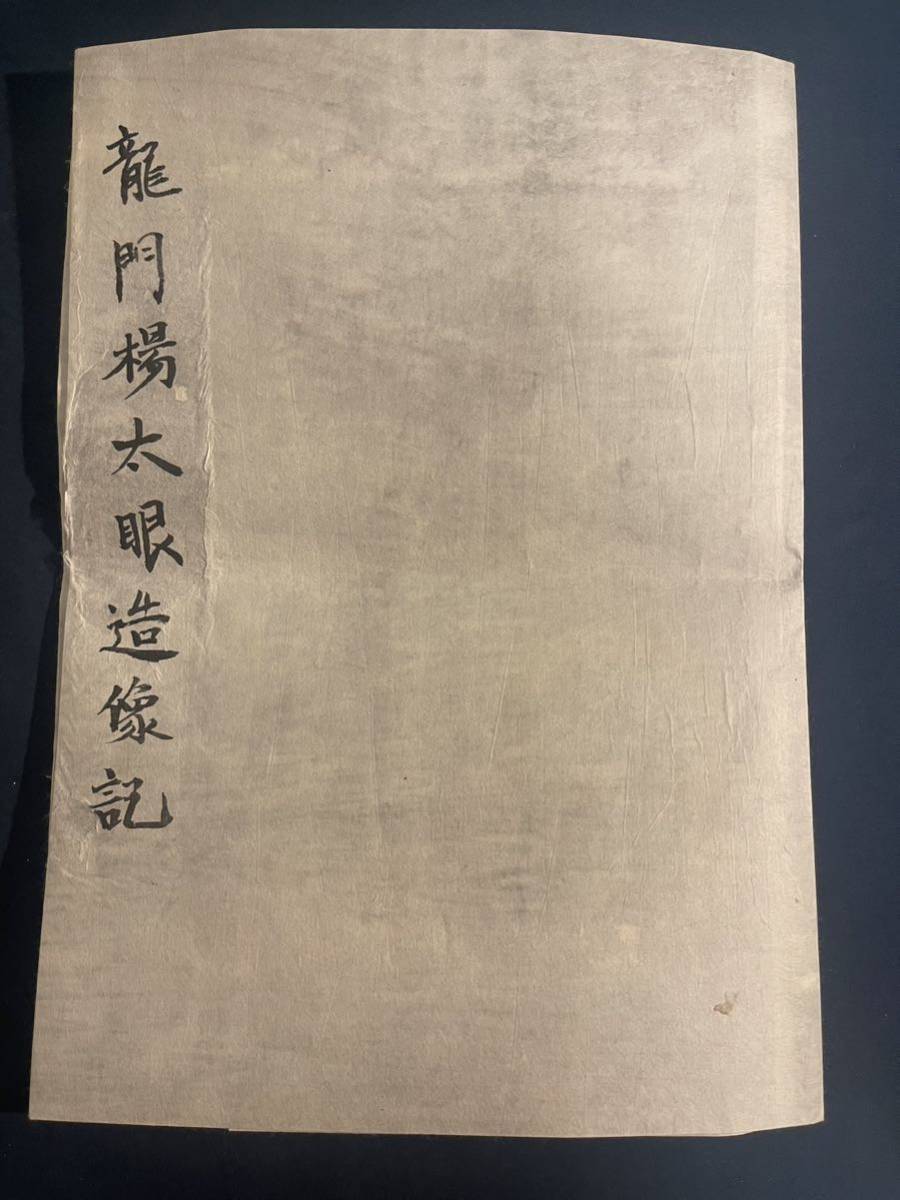 龍門楊太眼造像記